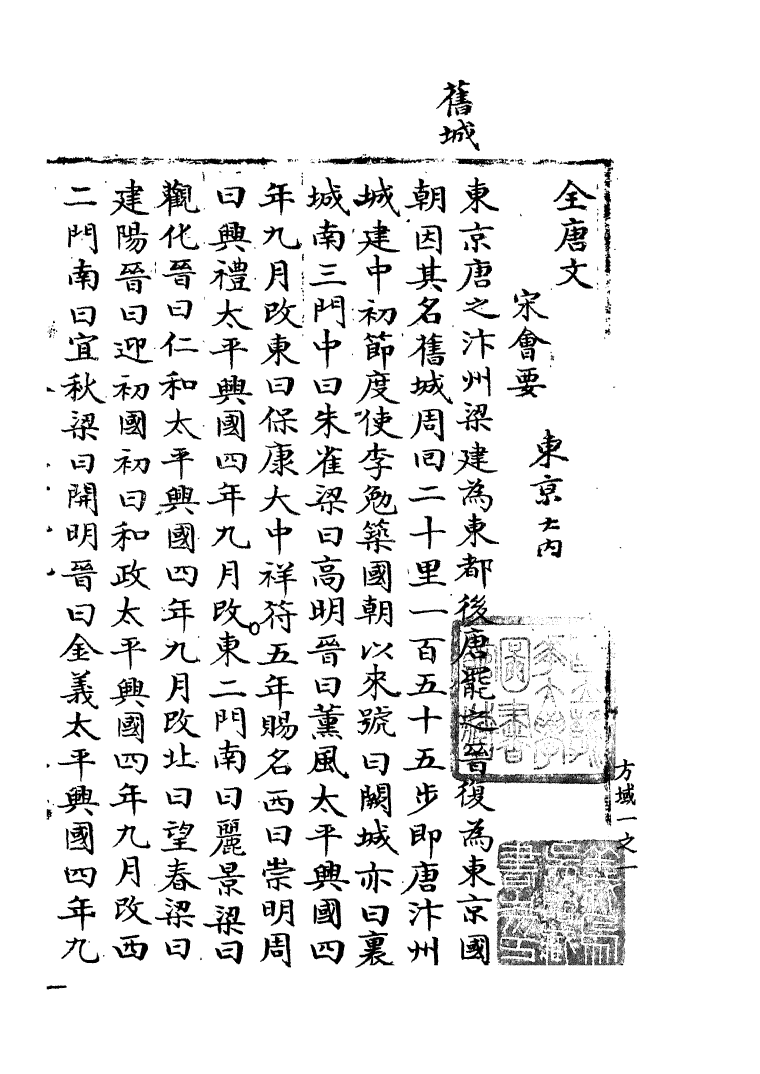 舊城
全唐文
宋會要
東京大內
東京唐之汴州梁建為東都後唐罷之晉復為東京國
朝因其名舊城周回二十里一百五十五步即唐汴州
城建中初節度使李勉築國朝以來號曰闕城亦曰裏
城南三門中曰朱雀梁曰高明晉曰薰風太平興國四
年九月改東曰保康大中祥符五年賜名西曰崇明周
曰興禮太平興國四年九月改東二門南曰麗景梁曰
觀化晉曰仁和太平興國四年九月改北曰望春梁曰
建陽晉曰迎初國初曰和政太平興國四年九月改西
二門南曰宜秋梁曰開明晉曰金義太平興國四年九
方域一之一
一